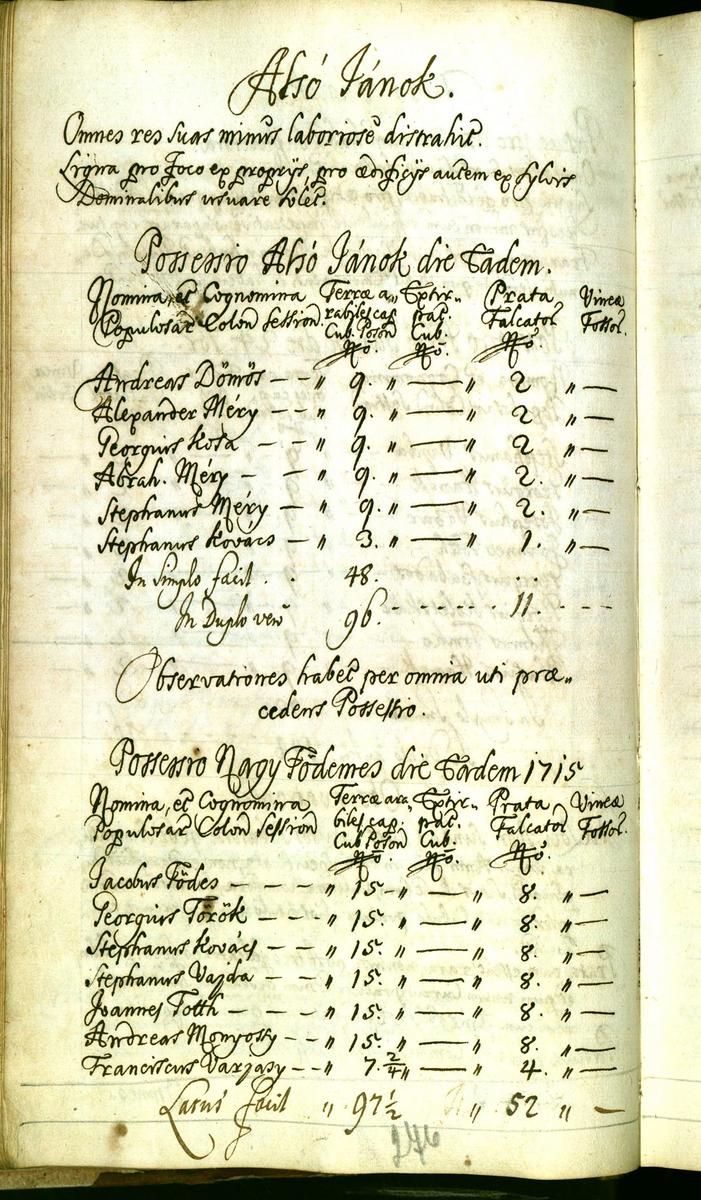 Alsó Jánok.
Omnes res suas minus laboriose distrahit.
Ligna pro foco ex proprijs, pro ædificijs autem ex sylvis
Dominalibus usuare solet.
Possessio Alsó Jánok die Eadem.
Nomina, et Cognomina Terræ a„ Extir„ Prata Vineæ
Populosar Colon Session. rabiles cap. pat. Falcator Fossor.
Cub. Poson Cub.
Nro. Nro. Nro.
Andreas Dömös – – „ 9. „ — „ 2 „ —
Alexander Méry – – „ 9. „ — „ 2 „ —
Georgius Kosa – – „ 9. „ — „ 2 „ —
Abrah. Méry – – „ 9. „ — „ 2. „ —
Stephanus Méry – „ 9. „ — „ 2. „ —
Stephanus Kovács – „ 3. „ — „ 1. „ —
In Simplo facit . . 48. . .
In Duplo vero 96. - - - - - - 11. - - -
Observationes habet per omnia uti præ„
cedens Possessio.
Possessio Nagy Födemes die Eadem 1715
Nomina, et Cognomina Terræ ara„ Extir„ Prata Vineæ
Populosar Colon Session biles cap. pat. Falcator Fossor.
Cub Poson Cub.
Nro. Nro. Nro.
Jacobus Födes – – – „ 15 - „ — „ 8. „ —
Georgius Török – – - „ 15. „ — „ 8. „ —
Stephanus Kovácz – – „ 15. „ — „ 8. „ —
Stephanus Vajda – – „ 15. „ — „ 8. „ —
Joannes Totth – – „ 15. „ — „ 8. „ —
Andreas Monyossy – – „ 15. „ — „ 8. „ —
Franciscus Varjasy – – „ 7. 2/4 „ — „ 4. „ —
Latus facit „ 97 1/2 „ 52 „ —
246